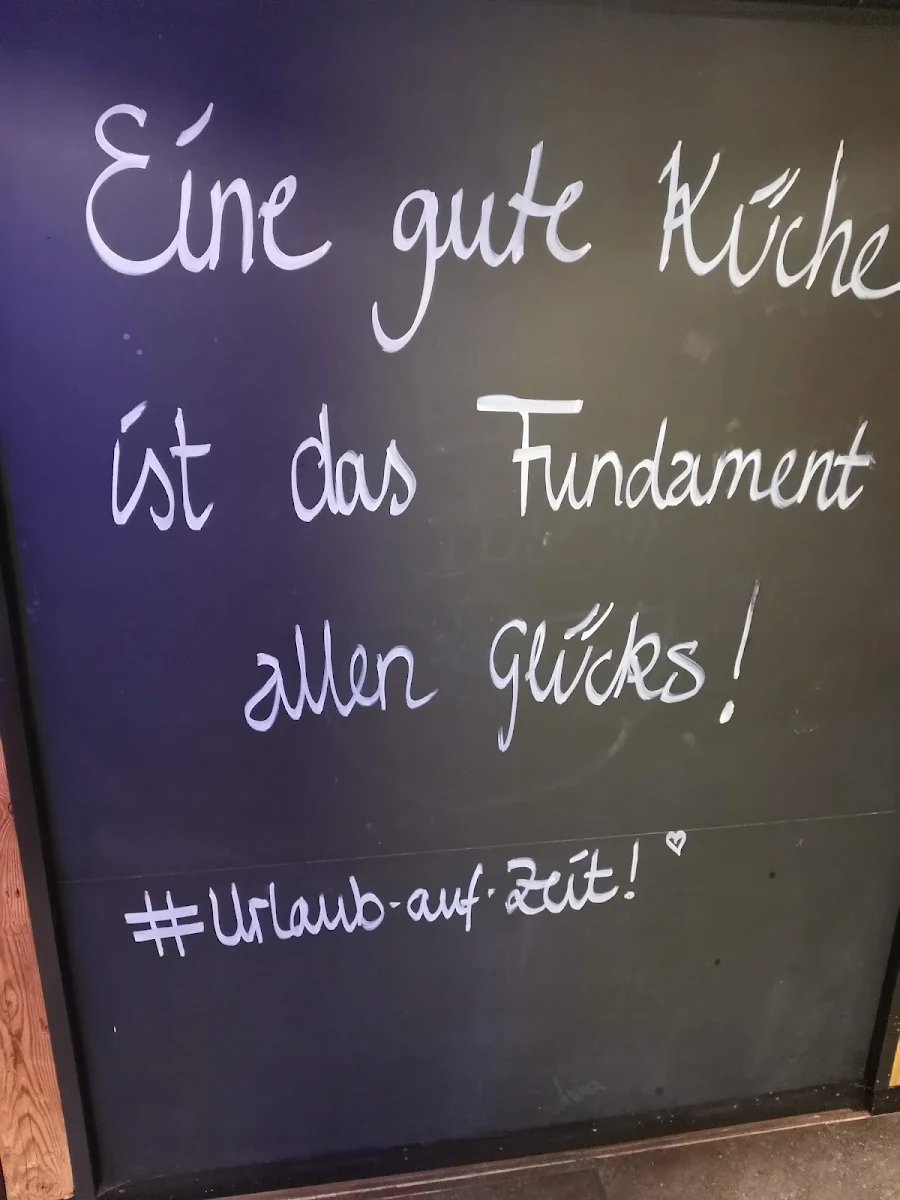 Eine gute Küche
ist das Fundament
allen Glücks!
#Urlaub-auf-Zeit! ♡